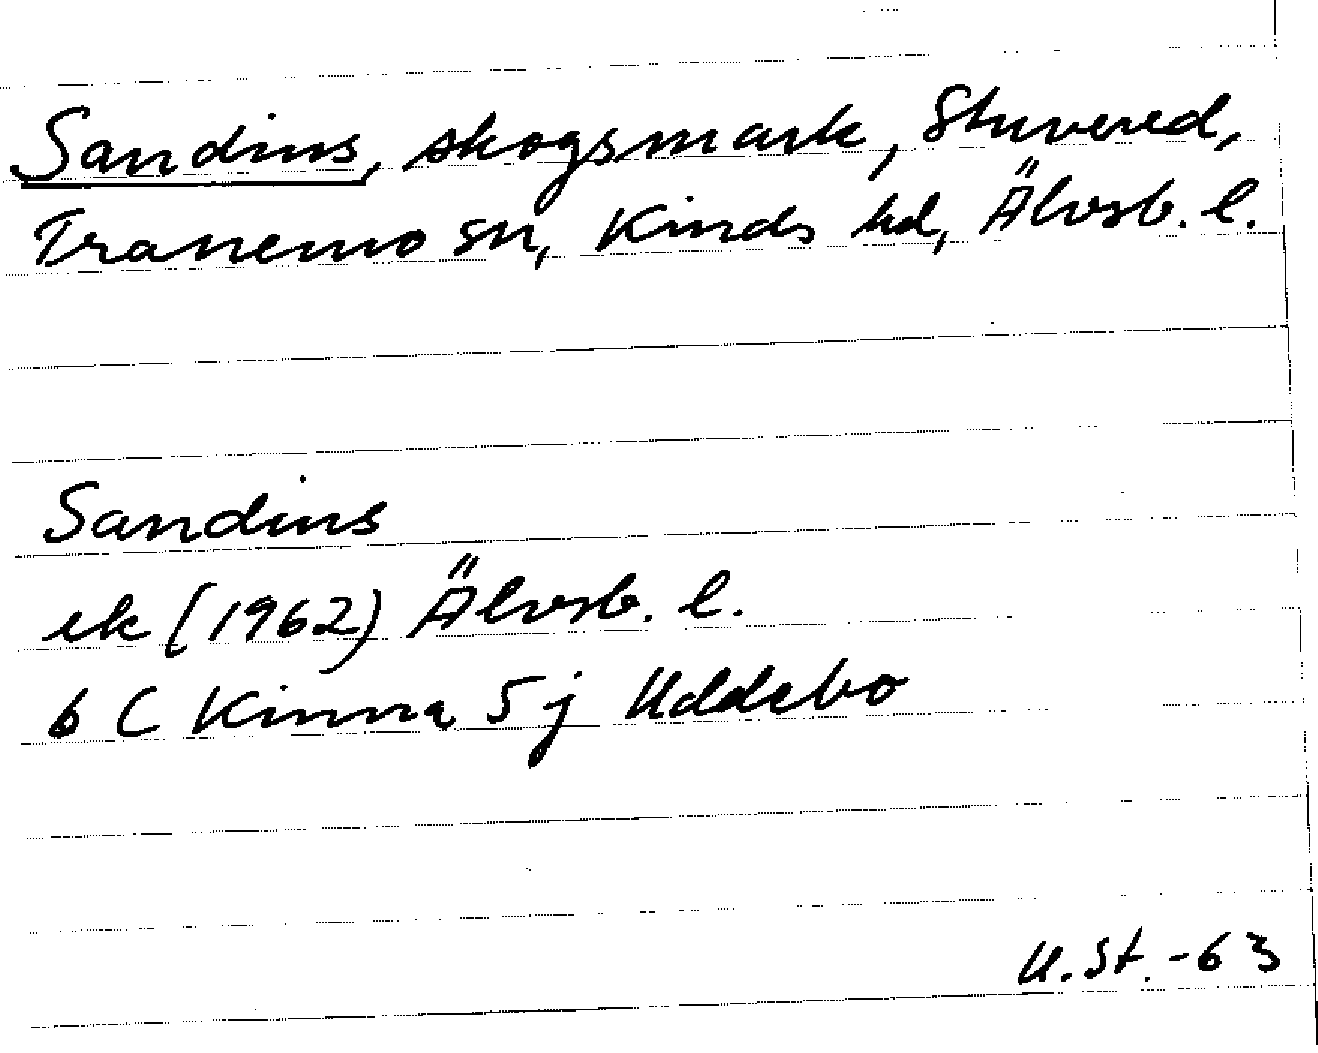 Sandins, skogsmark, Stuvered,
Tranemo sn, Kinds hd, Älvsb. l.
Sandins
ek (1962) Älvsb. l.
6 C Kinna 5 j Uddebo
U. St. -63